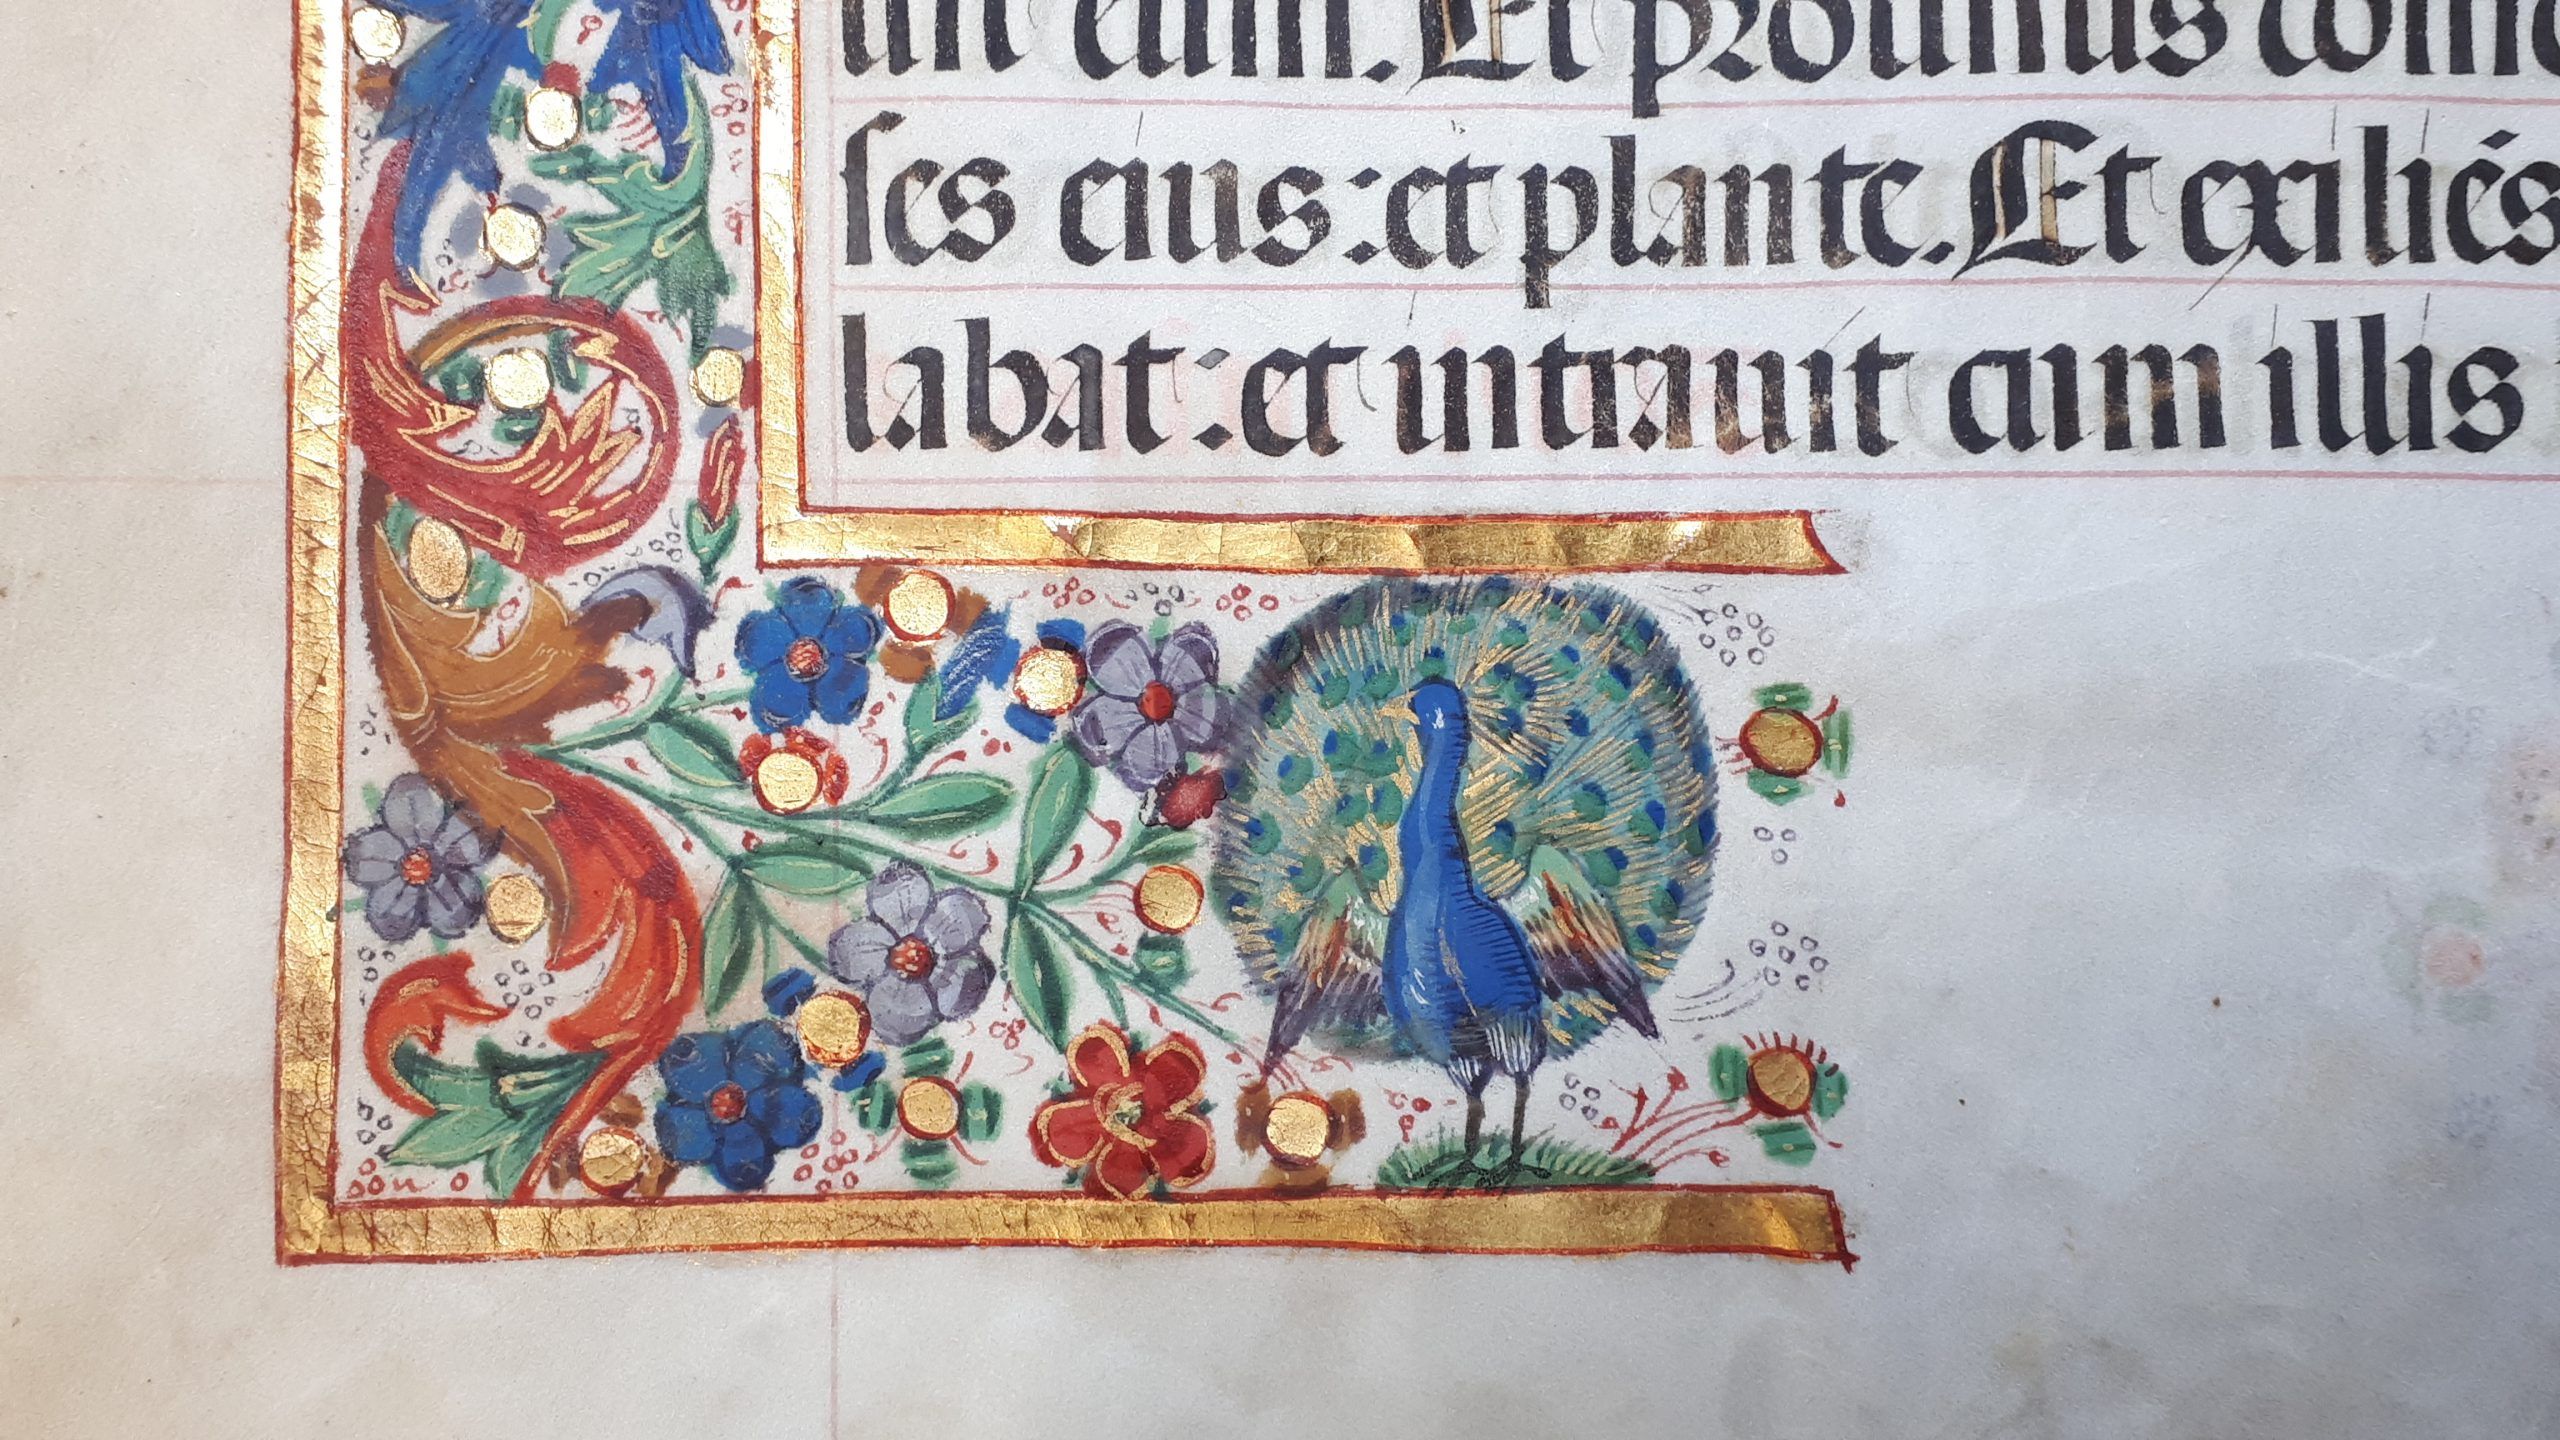 eum. Et protinus
ses eius: et plante. Et exiliés
labat: et intrauit cum illis